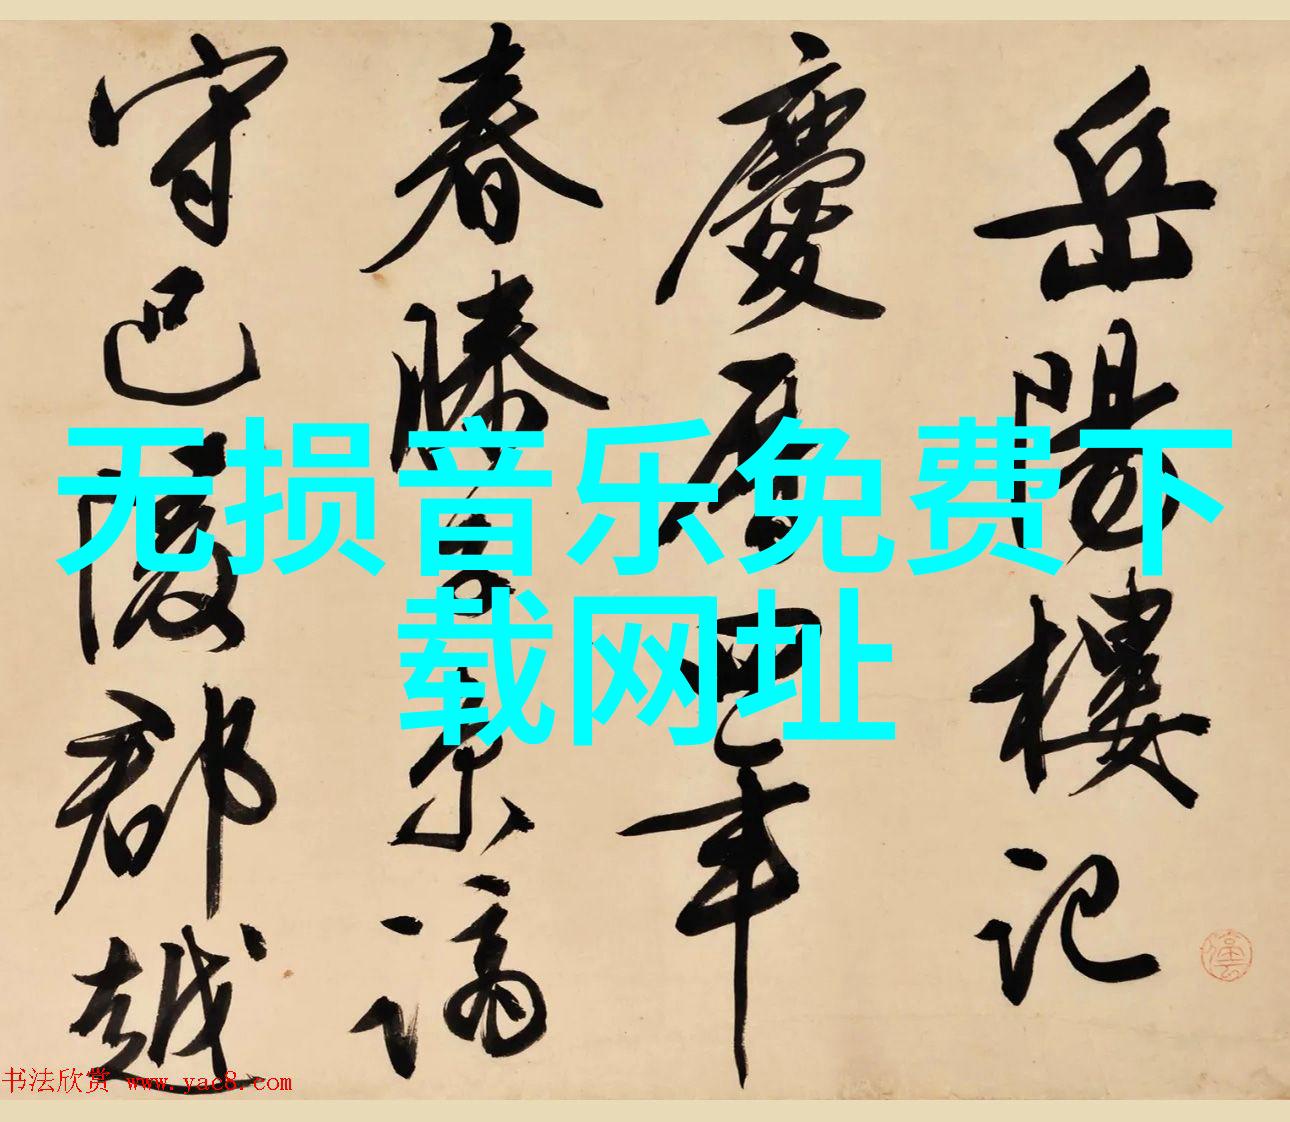 岳陽樓記
慶曆四年
春滕子京謫
守巴陵郡越
无损音乐免费下
载网址
书法欣赏 www.yac8.com